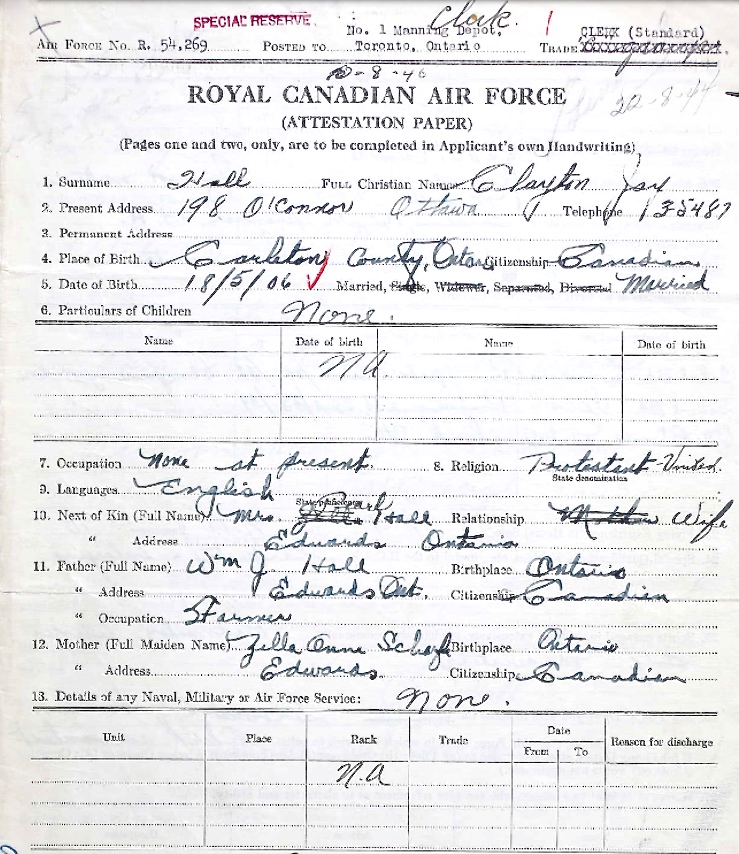 SPECIAL RESERVE
Clerk.
AIR FORCE No. R. 54,269 POSTED TO No. 1 Manning Depot, Toronto, Ontario TRADE CLERK (Standard)
-8-40
ROYAL CANADIAN AIR FORCE
22-8-44
(ATTESTATION PAPER)
(Pages one and two, only, are to be completed in Applicant's own Handwriting)
1. Surname Hall FULL Christian Names Clayton Jay
2. Present Address 198 O'Connor Ottawa Telephone 135487
3. Permanent Address
4. Place of Birth Carleton County, Ontario Citizenship Canadian
5. Date of Birth 18/5/06 Married, Single, Widower, Separated, Divorced Married
6. Particulars of Children None.
Name Date of birth Name Date of birth
N A
7. Occupation None at present. 8. Religion Protestant-United.
State denomination
9. Languages English
10. Next of Kin (Full Name) Mrs. Hall Relationship Mother Wife
" Address Edwards Ontario
11. Father (Full Name) Wm J. Hall Birthplace Ontario
" Address Edwards Ont. Citizenship Canadian
" Occupation Farmer
12. Mother (Full Maiden Name) Zella Anne Scharf Birthplace Ontario
" Address Edwards. Citizenship Canadian
13. Details of any Naval, Military or Air Force Service: None.
Unit Place Rank Trade Date From To Reason for discharge
N.A